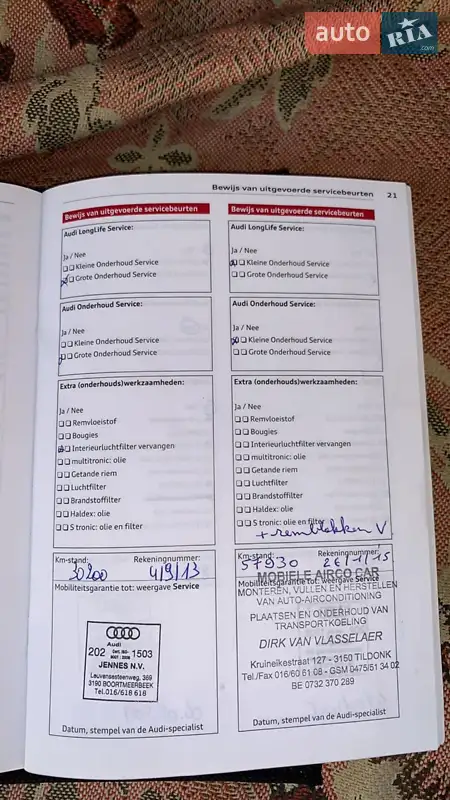 auto RIA.com
Bewijs van uitgevoerde servicebeurten 21
Bewijs van uitgevoerde servicebeurten
Audi LongLife Service:
Ja / Nee
Kleine Onderhoud Service
Grote Onderhoud Service
Audi Onderhoud Service:
Ja / Nee
Kleine Onderhoud Service
Grote Onderhoud Service
Extra (onderhouds)werkzaamheden:
Ja / Nee
Remvloeistof
Bougies
Interieurluchtfilter vervangen
multitronic: olie
Getande riem
Luchtfilter
Brandstoffilter
Haldex: olie
S tronic: olie en filter
Km-stand: Rekeningnummer:
30200 4/9/13
Mobiliteitsgarantie tot: weergave Service
Audi
202 1503
JENNES N.V.
Leuvensesteenweg, 369
3190 BOORTMEERBEEK
Tel.016/616 616
Datum, stempel van de Audi-specialist
Bewijs van uitgevoerde servicebeurten
Audi LongLife Service:
Ja / Nee
Kleine Onderhoud Service
Grote Onderhoud Service
Audi Onderhoud Service:
Ja / Nee
Kleine Onderhoud Service
Grote Onderhoud Service
Extra (onderhouds)werkzaamheden:
Ja / Nee
Remvloeistof
Bougies
Interieurluchtfilter vervangen
multitronic: olie
Getande riem
Luchtfilter
Brandstoffilter
Haldex: olie
S tronic: olie en filter
+ remblokken V
Km-stand: Rekeningnummer:
57930 26/1/15
Mobiliteitsgarantie tot: weergave Service
MOBIELE AIRCO CAR
MONTEREN, VULLEN EN HERSTELLEN
VAN AUTO-AIRCONDITIONING
PLAATSEN EN ONDERHOUD VAN
TRANSPORTKOELING
DIRK VAN VLASSELAER
Kruineikestraat 127 - 3150 TILDONK
Tel./Fax 016/60 61 08 - GSM 0475/51 34 02
BE 0732 370 289
Datum, stempel van de Audi-specialist